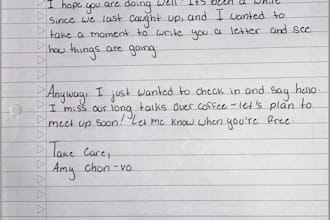 I hope you are doing well! It's been a while
since we last caught up, and I wanted to
take a moment to write you a letter and see
how things are going.
Anyway, I just wanted to check in and say hello.
I miss our long talks over coffee - let's plan to
meet up soon! Let me know when you're free.
Take care,
Amy Chon-vo